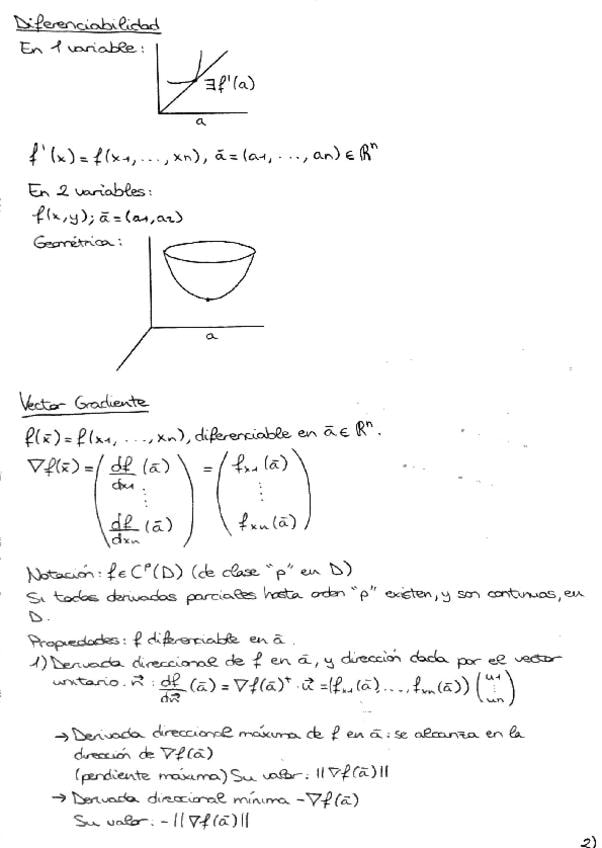 Diferenciabilidad
En 1 variable:
∃f'(a)
a
f'(x) = f(x₁, ..., xn), ā = (a₁, ..., an) ∈ ℝⁿ
En 2 variables:
f(x,y); ā = (a₁, a₂)
Geométrica:
a
Vector Gradiente
f(x̄) = f(x₁, ..., xn), diferenciable en ā ∈ ℝⁿ.
∇f(x̄) = ( df/dx₁ (ā) ⋮ df/dxn (ā) ) = ( fx₁(ā) ⋮ fxn(ā) )
Notación: f ∈ Cᵖ(D) (de clase "p" en D)
Si todas derivadas parciales hasta orden "p" existen, y son continuas, en
D.
Propiedades: f diferenciable en ā.
1) Derivada direccional de f en ā, y dirección dada por el vector
unitario. u⃗ : df/du⃗ (ā) = ∇f(ā)ᵗ · u⃗ = (fx₁(ā) ..., fxn(ā)) (u₁ ⋮ un)
→ Derivada direccional máxima de f en ā: se alcanza en la
dirección de ∇f(ā)
(pendiente máxima) Su valor: ||∇f(ā)||
→ Derivada direccional mínima -∇f(ā)
Su valor: -||∇f(ā)||
2)